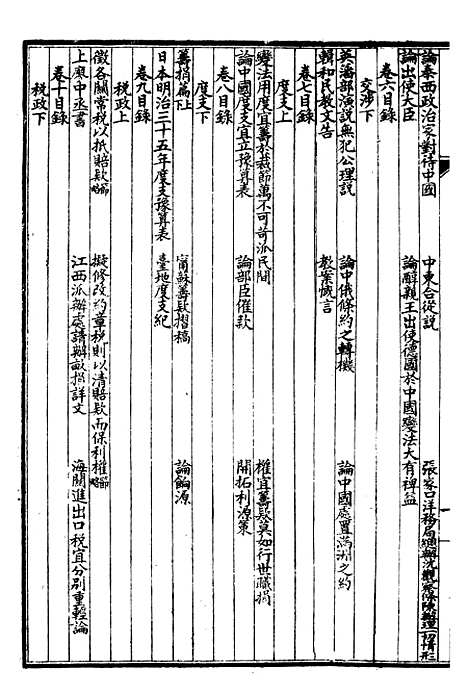 論泰西政治家對待中國 中東合從說 張家口洋務局總辦沈觀察條陳辦理一切情形
論出使大臣 論醇親王出使德國於中國變法大有裨益
卷六目錄
交涉下
英藩部演說無犯公理說 論中俄條約之轉機 論中國處置滿洲之約
輯和民教文告 教案慨言
卷七目錄
度支上
變法用度宜善於裁節萬不可苛派民間 權宜籌款莫如行世職捐
論中國度支宜立豫算表 論部臣催款 開拓利源策
卷八目錄
度支下
籌捐篇上下 甯蘇籌款摺稿 論餉源
日本明治三十五年度支豫算表 臺地度支紀
卷九目錄
稅政上
徵各關常稅以抵賠款節略 擬修改約章稅則以清賠款而保利權節略
上廖中丞書 江西派辦處請辦畝捐詳文 海關進出口稅宜分別重輕論
卷十目錄
稅政下